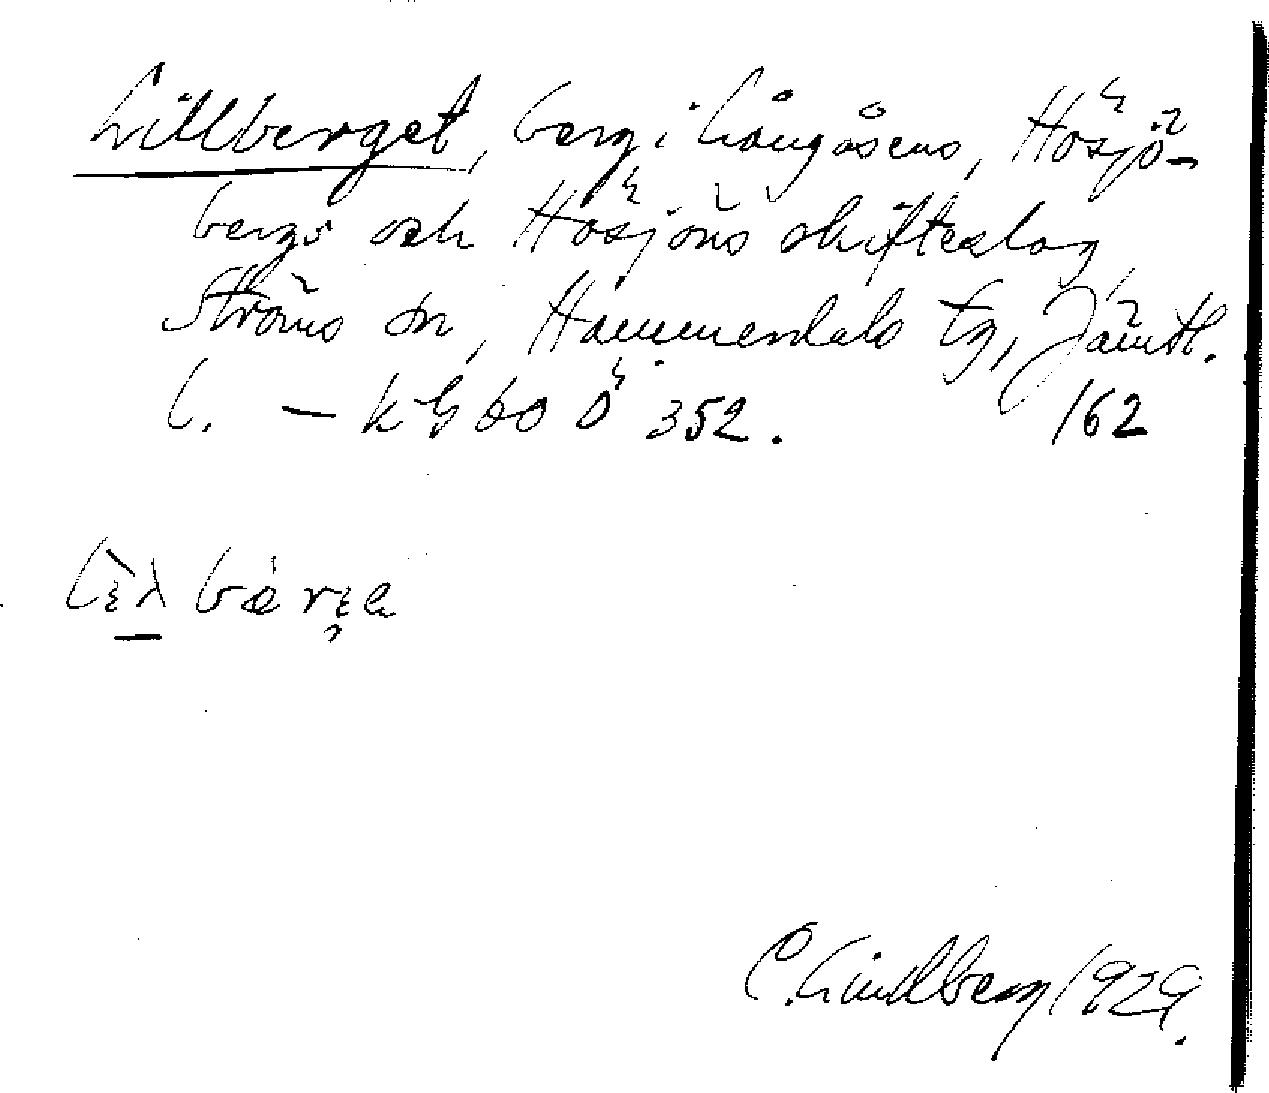 Lillberget, berg i Långåsens, Hösjö-
bergs och Hösjöns skifteslag,
Ströms sn, Hammerdals tg, Jämtl.
l. — kG bo Ö 352. 162
C. Lindberg 1929.